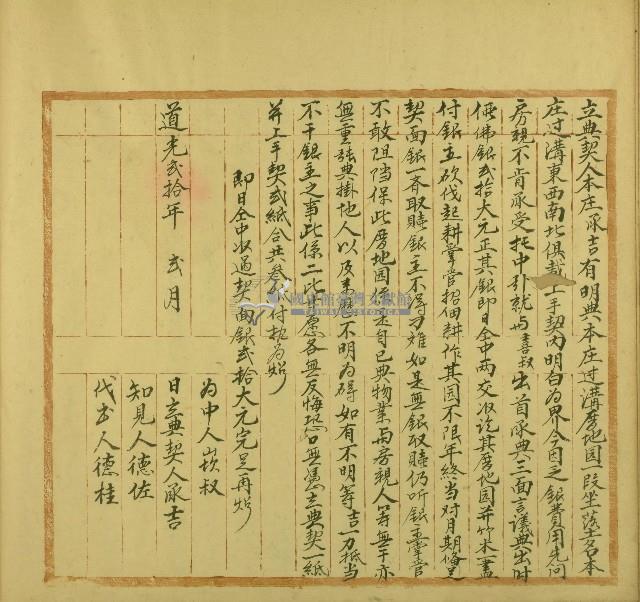 立典契人本庄承吉有明典本庄过溝厝地园一段坐落土名本
庄过溝東西南北俱載上手契內明白為界今因乏銀費用先问
房親不肯承受托中引就与喜叔出首承典三面言議典出时
價佛銀弍拾大元正其銀即日仝中两交收訖其厝地园并竹木一盡
付銀主砍伐起耕掌管招佃耕作其园不限年終当对月期備足
契面銀一齐取贖銀主不得刁难如是無銀取贖仍听銀主掌管
不敢阻挡保此厝地园係承自己典物業與房親人等無干亦
無重張典掛他人以及来歷不明為碍如有不明等吉一力抵当
不干銀主之事此係二比甘愿各無反悔恐口無憑立典契一紙
并上手契弍紙合共叁紙付执為炤
即日仝中收过契面銀弍拾大元完足再炤
為中人崁叔
日立典契人承吉
知見人德佐
代书人德桂
道光弍拾年 弍月
國史館臺灣文獻館